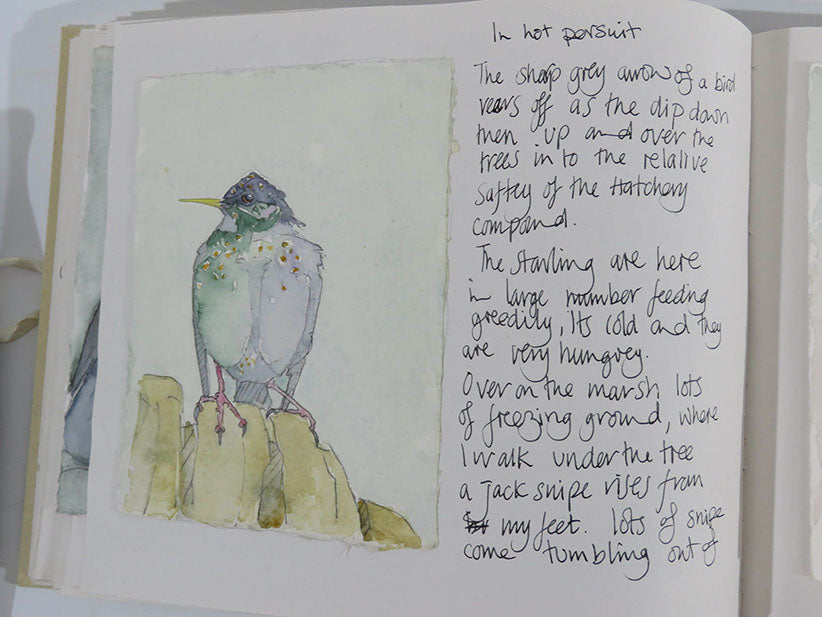 In hot persuit
The sharp grey arrow of a bird
veers off as the dip down
then up and over the
trees in to the relalive
Saftey of the Hatchery
compound.
The starling are here
in large number feeding
greedily, its cold and they
are very hungrey.
Over on the marsh lots
of freezing ground, where
I walk under the tree
a jack snipe rises from
my feet. lots of snipe
come tumbling out of